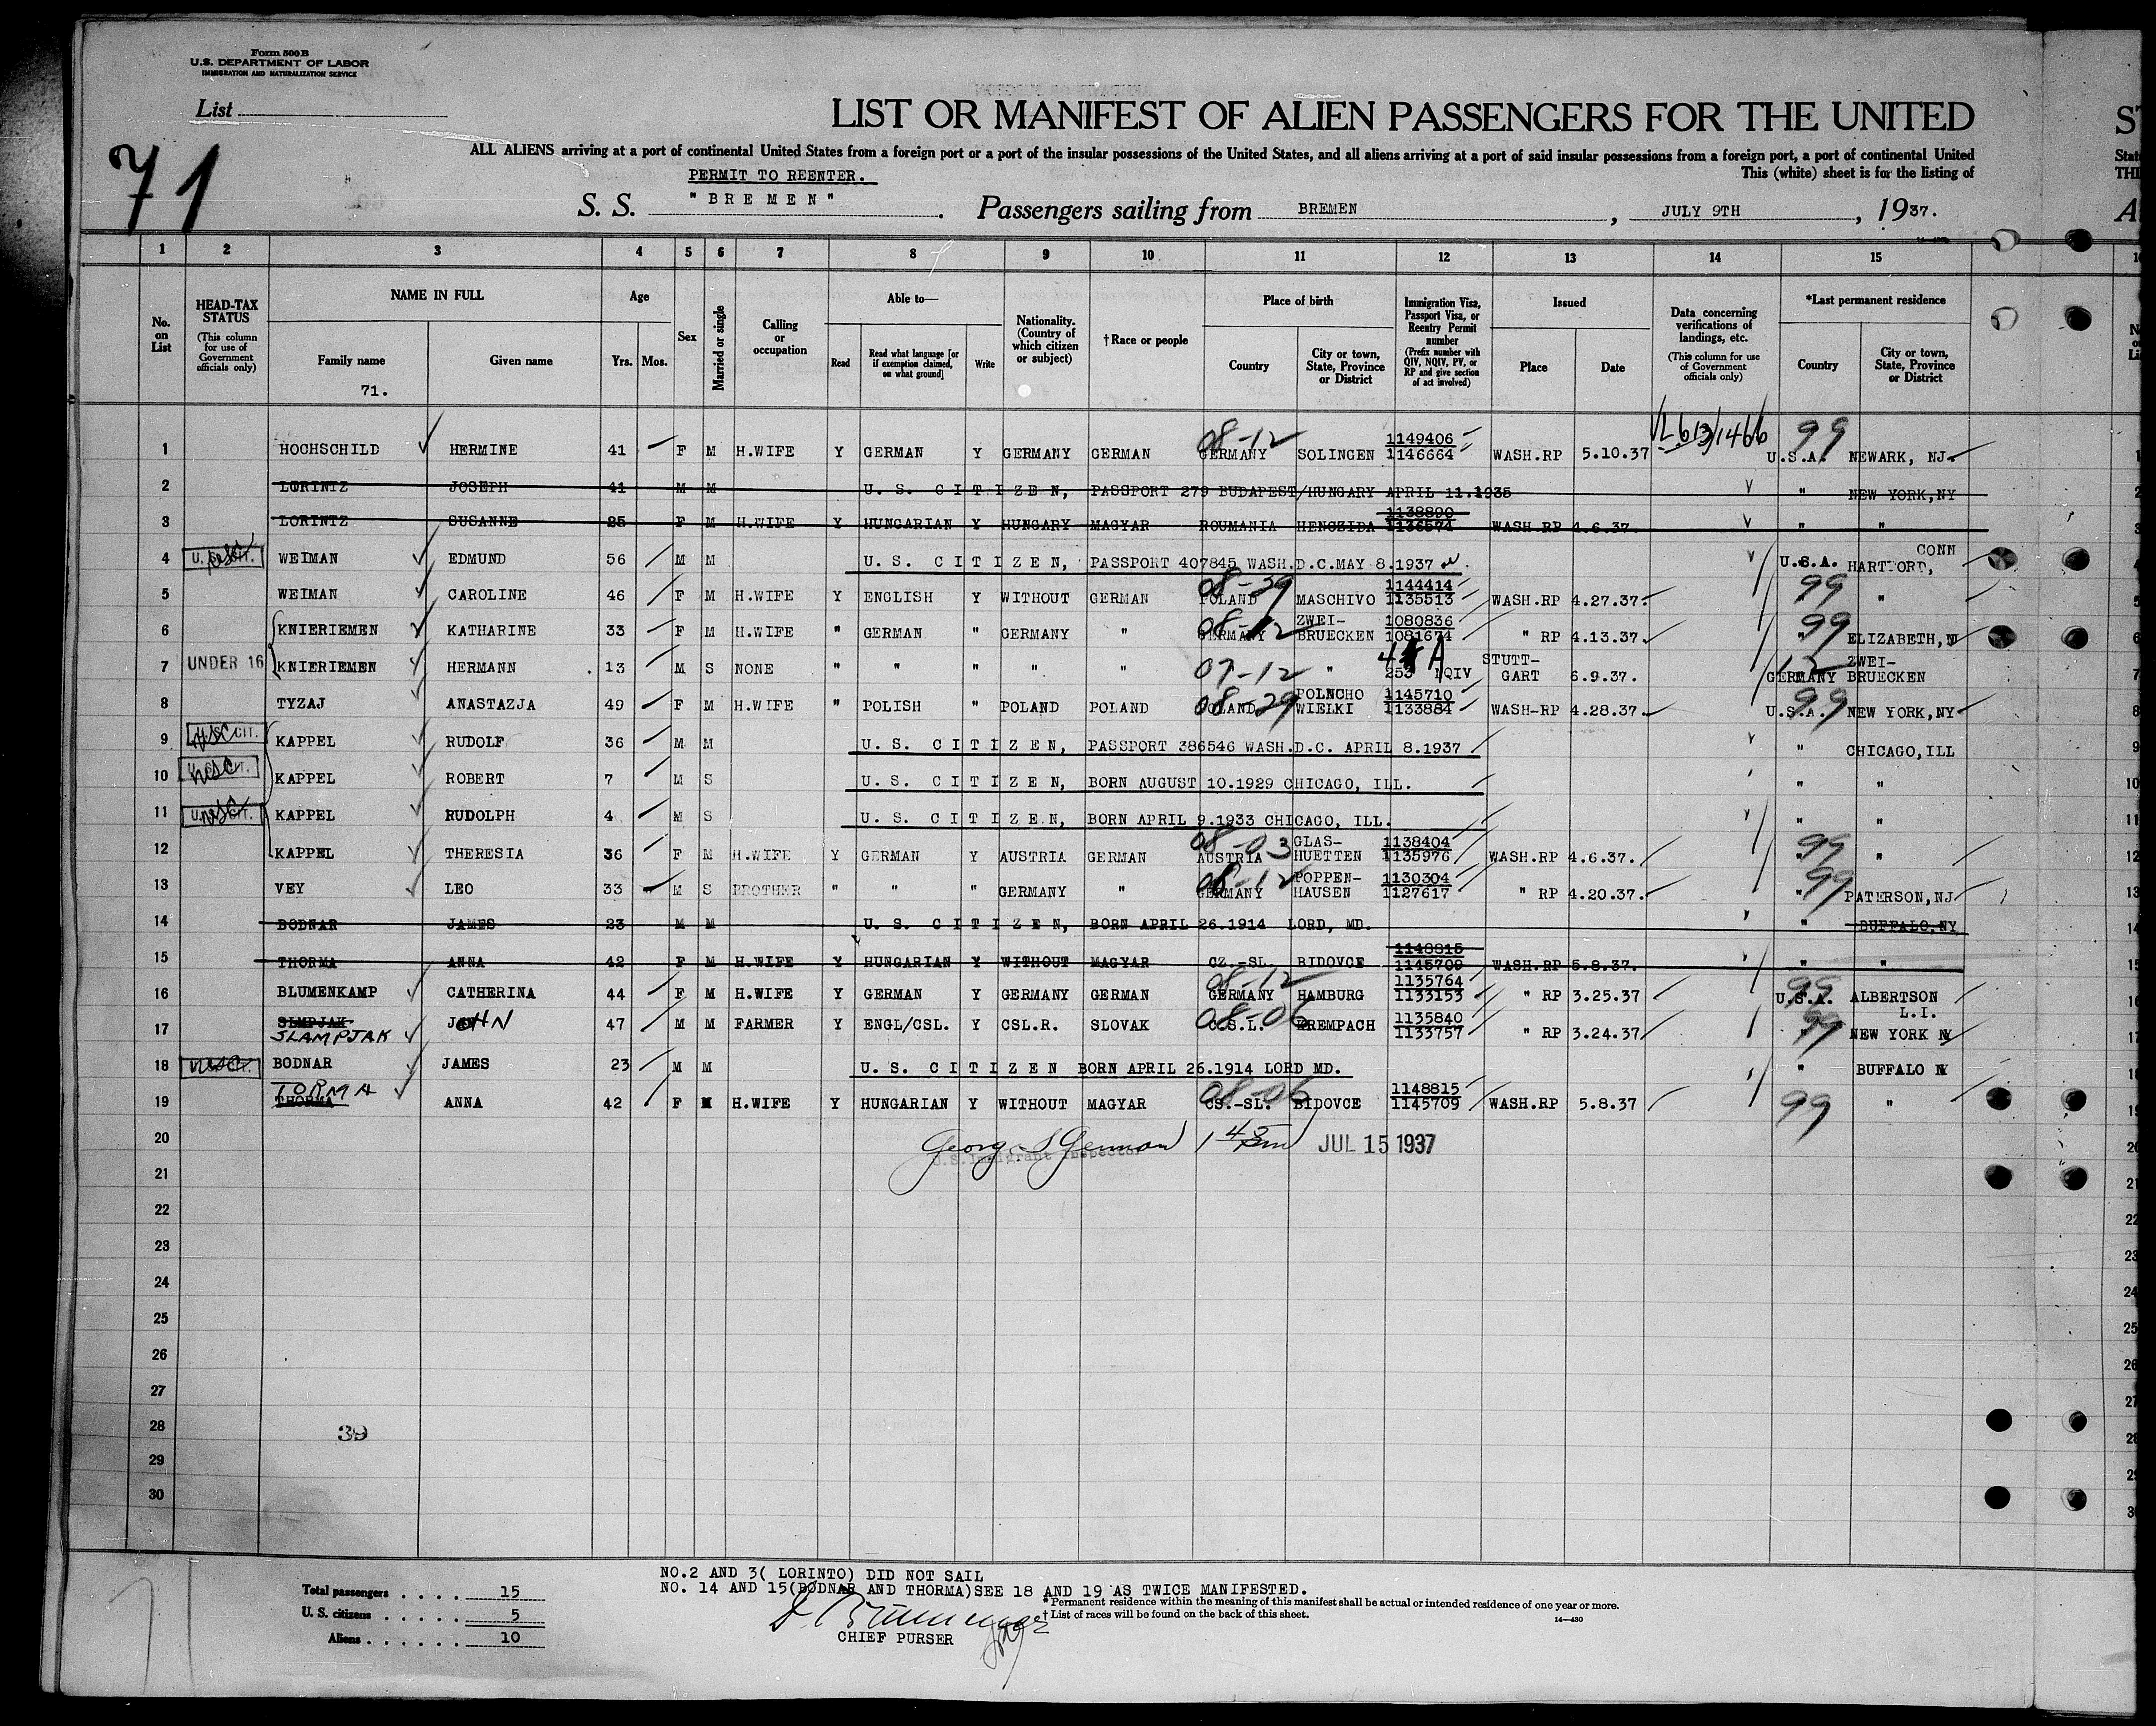 Form 500 B
U.S. DEPARTMENT OF LABOR
IMMIGRATION AND NATURALIZATION SERVICE
List
71
LIST OR MANIFEST OF ALIEN PASSENGERS FOR THE UNITED
ST
ALL ALIENS arriving at a port of continental United States from a foreign port or a port of the insular possessions of the United States, and all aliens arriving at a port of said insular possessions from a foreign port, a port of continental United
PERMIT TO REENTER.
This (white) sheet is for the listing of
S. S. "BREMEN". Passengers sailing from BREMEN, JULY 9TH, 1937.
1 2 3 4 5 6 7 8 9 10 11 12 13 14 15
No. on List
HEAD-TAX STATUS (This column for use of Government officials only)
NAME IN FULL
Family name
Given name
71.
Age
Yrs. Mos.
Sex
Married or single
Calling or occupation
Able to—
Read
Read what language [or if exemption claimed, on what ground]
Write
Nationality. (Country of which citizen or subject)
† Race or people
Place of birth
Country
City or town, State, Province or District
Immigration Visa, Passport Visa, or Reentry Permit number (Prefix number with QIV, NQIV, PV, or RP and give section of act involved)
Issued
Place
Date
Data concerning verifications of landings, etc. (This column for use of Government officials only)
*Last permanent residence
Country
City or town, State, Province or District
1 HOCHSCHILD HERMINE 41 F M H.WIFE Y GERMAN Y GERMANY GERMAN 08-12 GERMANY SOLINGEN 1149406 1146664 WASH.RP 5.10.37 99 U.S.A. NEWARK, NJ.
2 LORINTZ JOSEPH 41 M M U. S. CITIZEN, PASSPORT 279 BUDAPEST/HUNGARY APRIL 11.1935 " NEW YORK,NY
3 LORINTZ SUSANNE 25 F M H.WIFE Y HUNGARIAN Y HUNGARY MAGYAR ROUMANIA HENCZIDA 1138890 1136574 WASH.RP 4.6.37. " "
4 WEIMAN EDMUND 56 M M U. S. CITIZEN, PASSPORT 407845 WASH.D.C.MAY 8.1937 U.S.A. HARTFORD, CONN
5 WEIMAN CAROLINE 46 F M H.WIFE Y ENGLISH Y WITHOUT GERMAN 08-39 POLAND MASCHIVO 1144414 1135513 WASH.RP 4.27.37. 99 "
6 KNIERIEMEN KATHARINE 33 F M H.WIFE " GERMAN " GERMANY " 08-12 GERMANY ZWEI-BRUECKEN 1080836 1081674 " RP 4.13.37. 99 " ELIZABETH,NJ
7 UNDER 16 KNIERIEMEN HERMANN 13 M S NONE " " " " " 07-12 " 4 A 253 NQIV STUTT-GART 6.9.37. 12 GERMANY ZWEI-BRUECKEN
8 TYZAJ ANASTAZJA 49 F M H.WIFE " POLISH " POLAND POLAND 08-29 POLAND POLNCHO WIELKI 1145710 1133884 WASH-RP 4.28.37. 99 U.S.A. NEW YORK,NY
9 KAPPEL RUDOLF 36 M M U. S. CITIZEN, PASSPORT 386546 WASH.D.C. APRIL 8.1937 " CHICAGO,ILL
10 KAPPEL ROBERT 7 M S U. S. CITIZEN, BORN AUGUST 10.1929 CHICAGO, ILL. " "
11 KAPPEL RUDOLPH 4 M S U. S. CITIZEN, BORN APRIL 9.1933 CHICAGO, ILL. " "
12 KAPPEL THERESIA 36 F M H.WIFE Y GERMAN Y AUSTRIA GERMAN 08-03 AUSTRIA GLAS-HUETTEN 1138404 1135976 WASH.RP 4.6.37. 99 " "
13 VEY LEO 33 M S BROTHER " " " GERMANY " 08-12 GERMANY POPPEN-HAUSEN 1130304 1127617 " RP 4.20.37. 99 " PATERSON,NJ
14 BODNAR JAMES 23 M M U. S. CITIZEN, BORN APRIL 26.1914 LORD, MD. " BUFFALO,NY
15 THORMA ANNA 42 F M H.WIFE Y HUNGARIAN Y WITHOUT MAGYAR CZ.-SL. BIDOVCE 1148815 1145709 WASH.RP 5.8.37. " "
16 BLUMENKAMP CATHERINA 44 F M H.WIFE Y GERMAN Y GERMANY GERMAN 08-12 GERMANY HAMBURG 1135764 1133153 " RP 3.25.37 99 U.S.A. ALBERTSON L.I.
17 SLMPJAK SLAMPJAK JOHN 47 M M FARMER Y ENGL/CSL. Y CSL.R. SLOVAK 08-06 C.S.L. KREMPACH 1135840 1133757 " RP 3.24.37 99 " NEW YORK NY
18 BODNAR JAMES 23 M M U. S. CITIZEN BORN APRIL 26.1914 LORD MD. " BUFFALO NY
19 TORMA THORMA ANNA 42 F M H.WIFE Y HUNGARIAN Y WITHOUT MAGYAR 08-06 CS.-SL. BIDOVCE 1148815 1145709 WASH.RP 5.8.37 99 "
20 JUL 15 1937
U.S. Immigrant Inspector
21
22
23
24
25
26
27
28 39
29
30
NO.2 AND 3( LORINTO) DID NOT SAIL
NO. 14 AND 15(BODNAR AND THORMA)SEE 18 AND 19 AS TWICE MANIFESTED.
Total passengers . . . . 15
U. S. citizens . . . . . 5
Aliens . . . . . . 10
* Permanent residence within the meaning of this manifest shall be actual or intended residence of one year or more.
† List of races will be found on the back of this sheet.
14—430
CHIEF PURSER